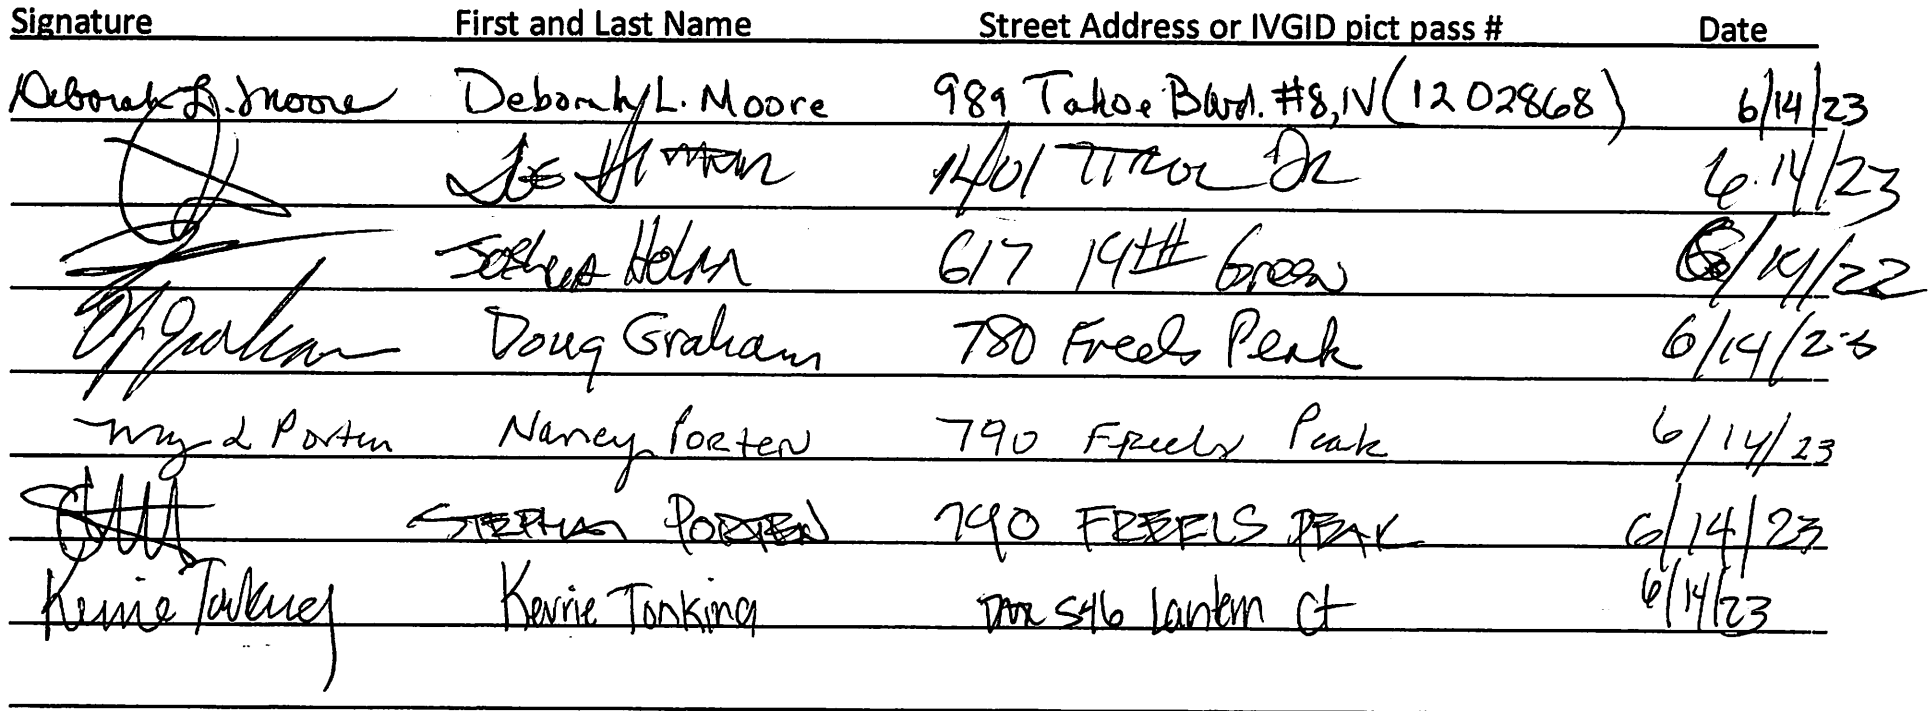 Signature First and Last Name Street Address or IVGID pict pass # Date
Deborah L. Moore Deborah L. Moore 989 Tahoe Blvd. #8, IV (1202868) 6/14/23
1401 Dr 6.14/23
Joshua Holm 617 14th Green 6/14/22
Doug Graham 780 Freels Peak 6/14/23
Porten Nancy Porten 790 Freels Peak 6/14/23
Stephen Porten 790 FREELS PEAK 6/14/23
Kerrie Tonking Kerrie Tonking 546 Lantern Ct 6/14/23